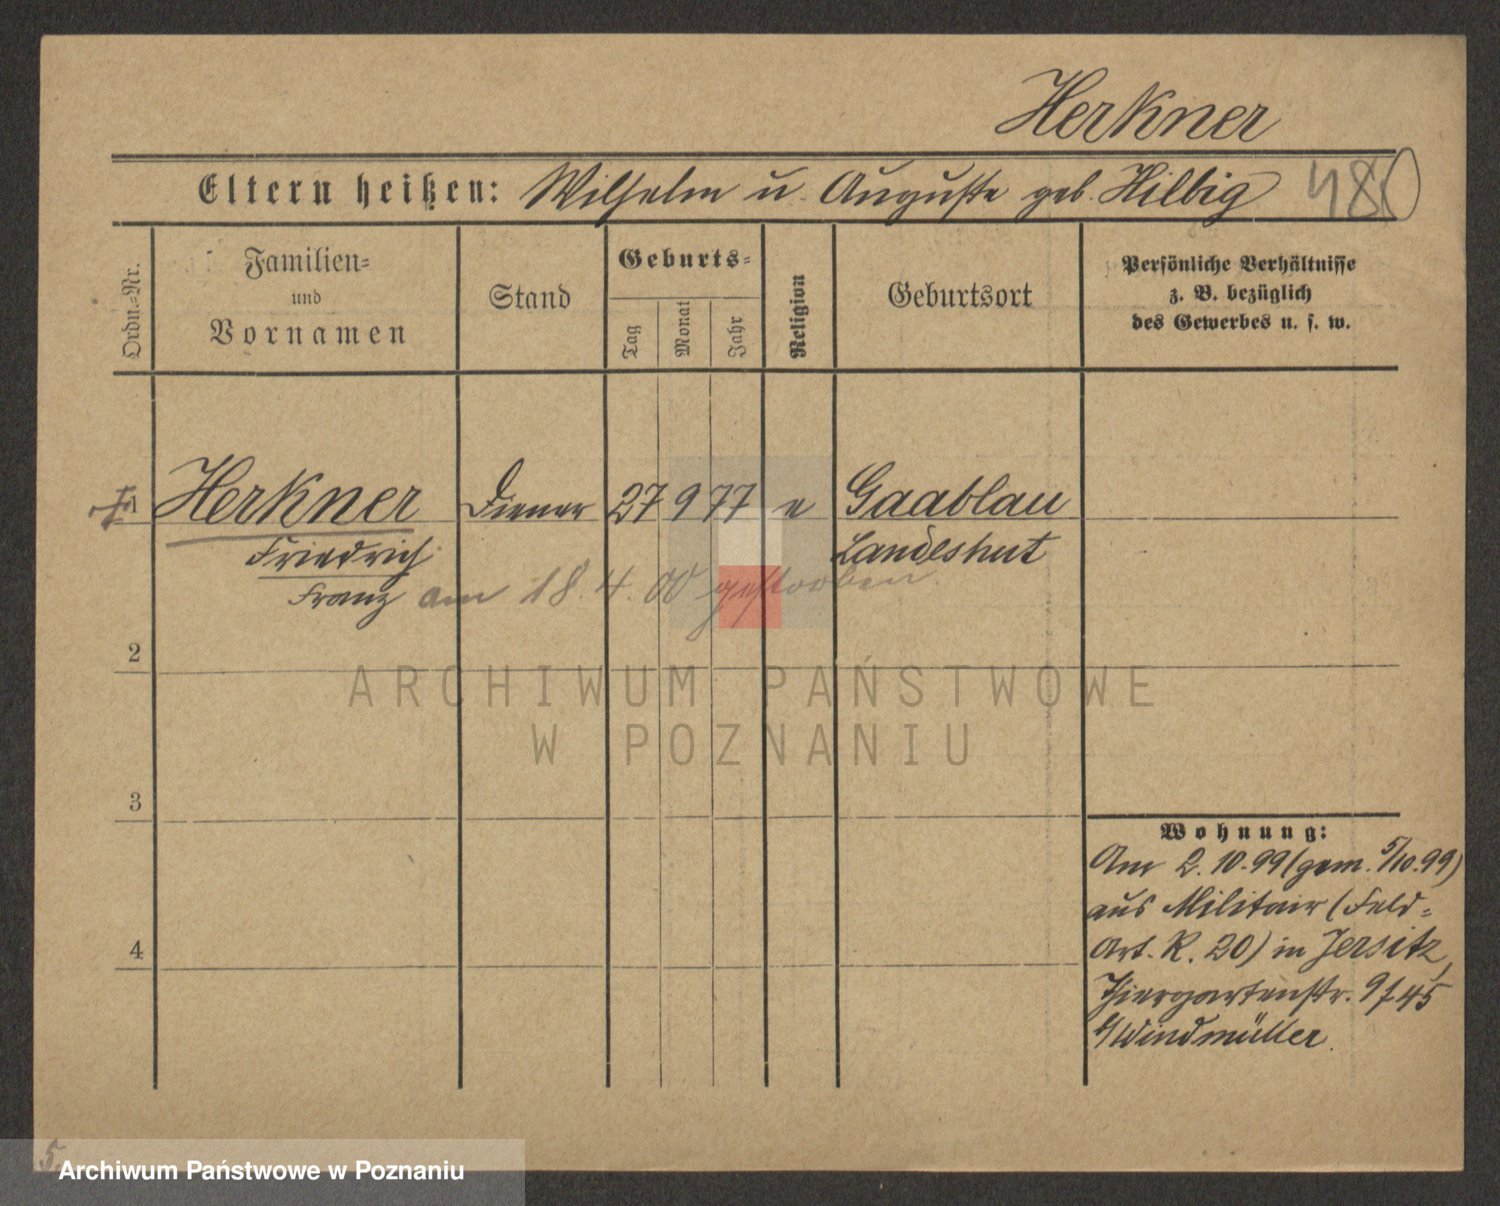 Herkner
Eltern heißen: Wilhelm u. Auguste geb. Hilbig 480
Ordn.-Nr.
Familien-
und
Vornamen
Stand
Geburts-
Tag
Monat
Jahr
Religion
Geburtsort
Persönliche Verhältnisse
z. B. bezüglich
des Gewerbes u. s. w.
1 Herkner Diener 27 9 77 e Gaablau
Friedrich Landeshut
Franz am 18. 4. 00 gestorben.
2
ARCHIWUM PAŃSTWOWE
W POZNANIU
3
Wohnung:
Am 2. 10. 99 (gem. 5/10. 99)
aus Militair (Feld-
Art. R. 20) in Jersitz,
Thiergartenstr. 9 f 45
b/Windmüller.
4
5
Archiwum Państwowe w Poznaniu